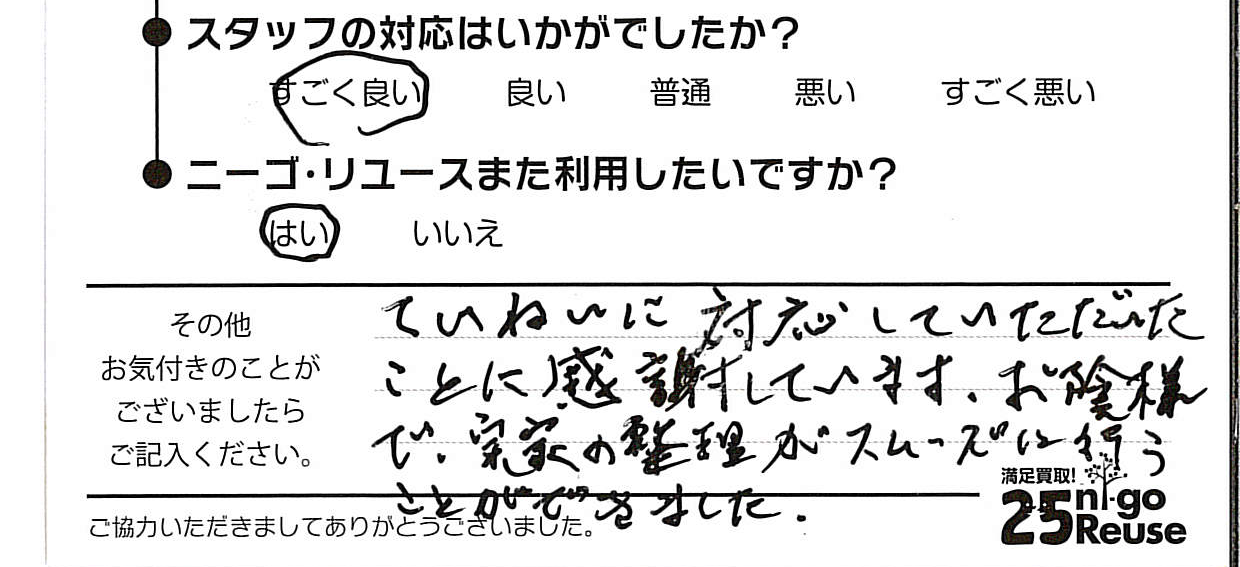 スタッフの対応はいかがでしたか？
すごく良い 良い 普通 悪い すごく悪い
ニーゴ・リユースまた利用したいですか？
はい いいえ
その他
お気付きのことが
ございましたら
ご記入ください。
ていねいに対応していただいた
ことに感謝しています。お陰様
で、実家の整理がスムーズに行う
ことができました．
ご協力いただきましてありがとうございました。
満足買取!
25 ni-go
Reuse